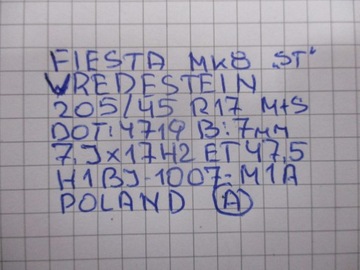 FIESTA MK8 „ST"
VREDESTEIN
205/45 R17 M+S
DOT:4719 B:7mm
7.Jx17H2 ET 47,5
H1BJ-1007-M1A
POLAND A